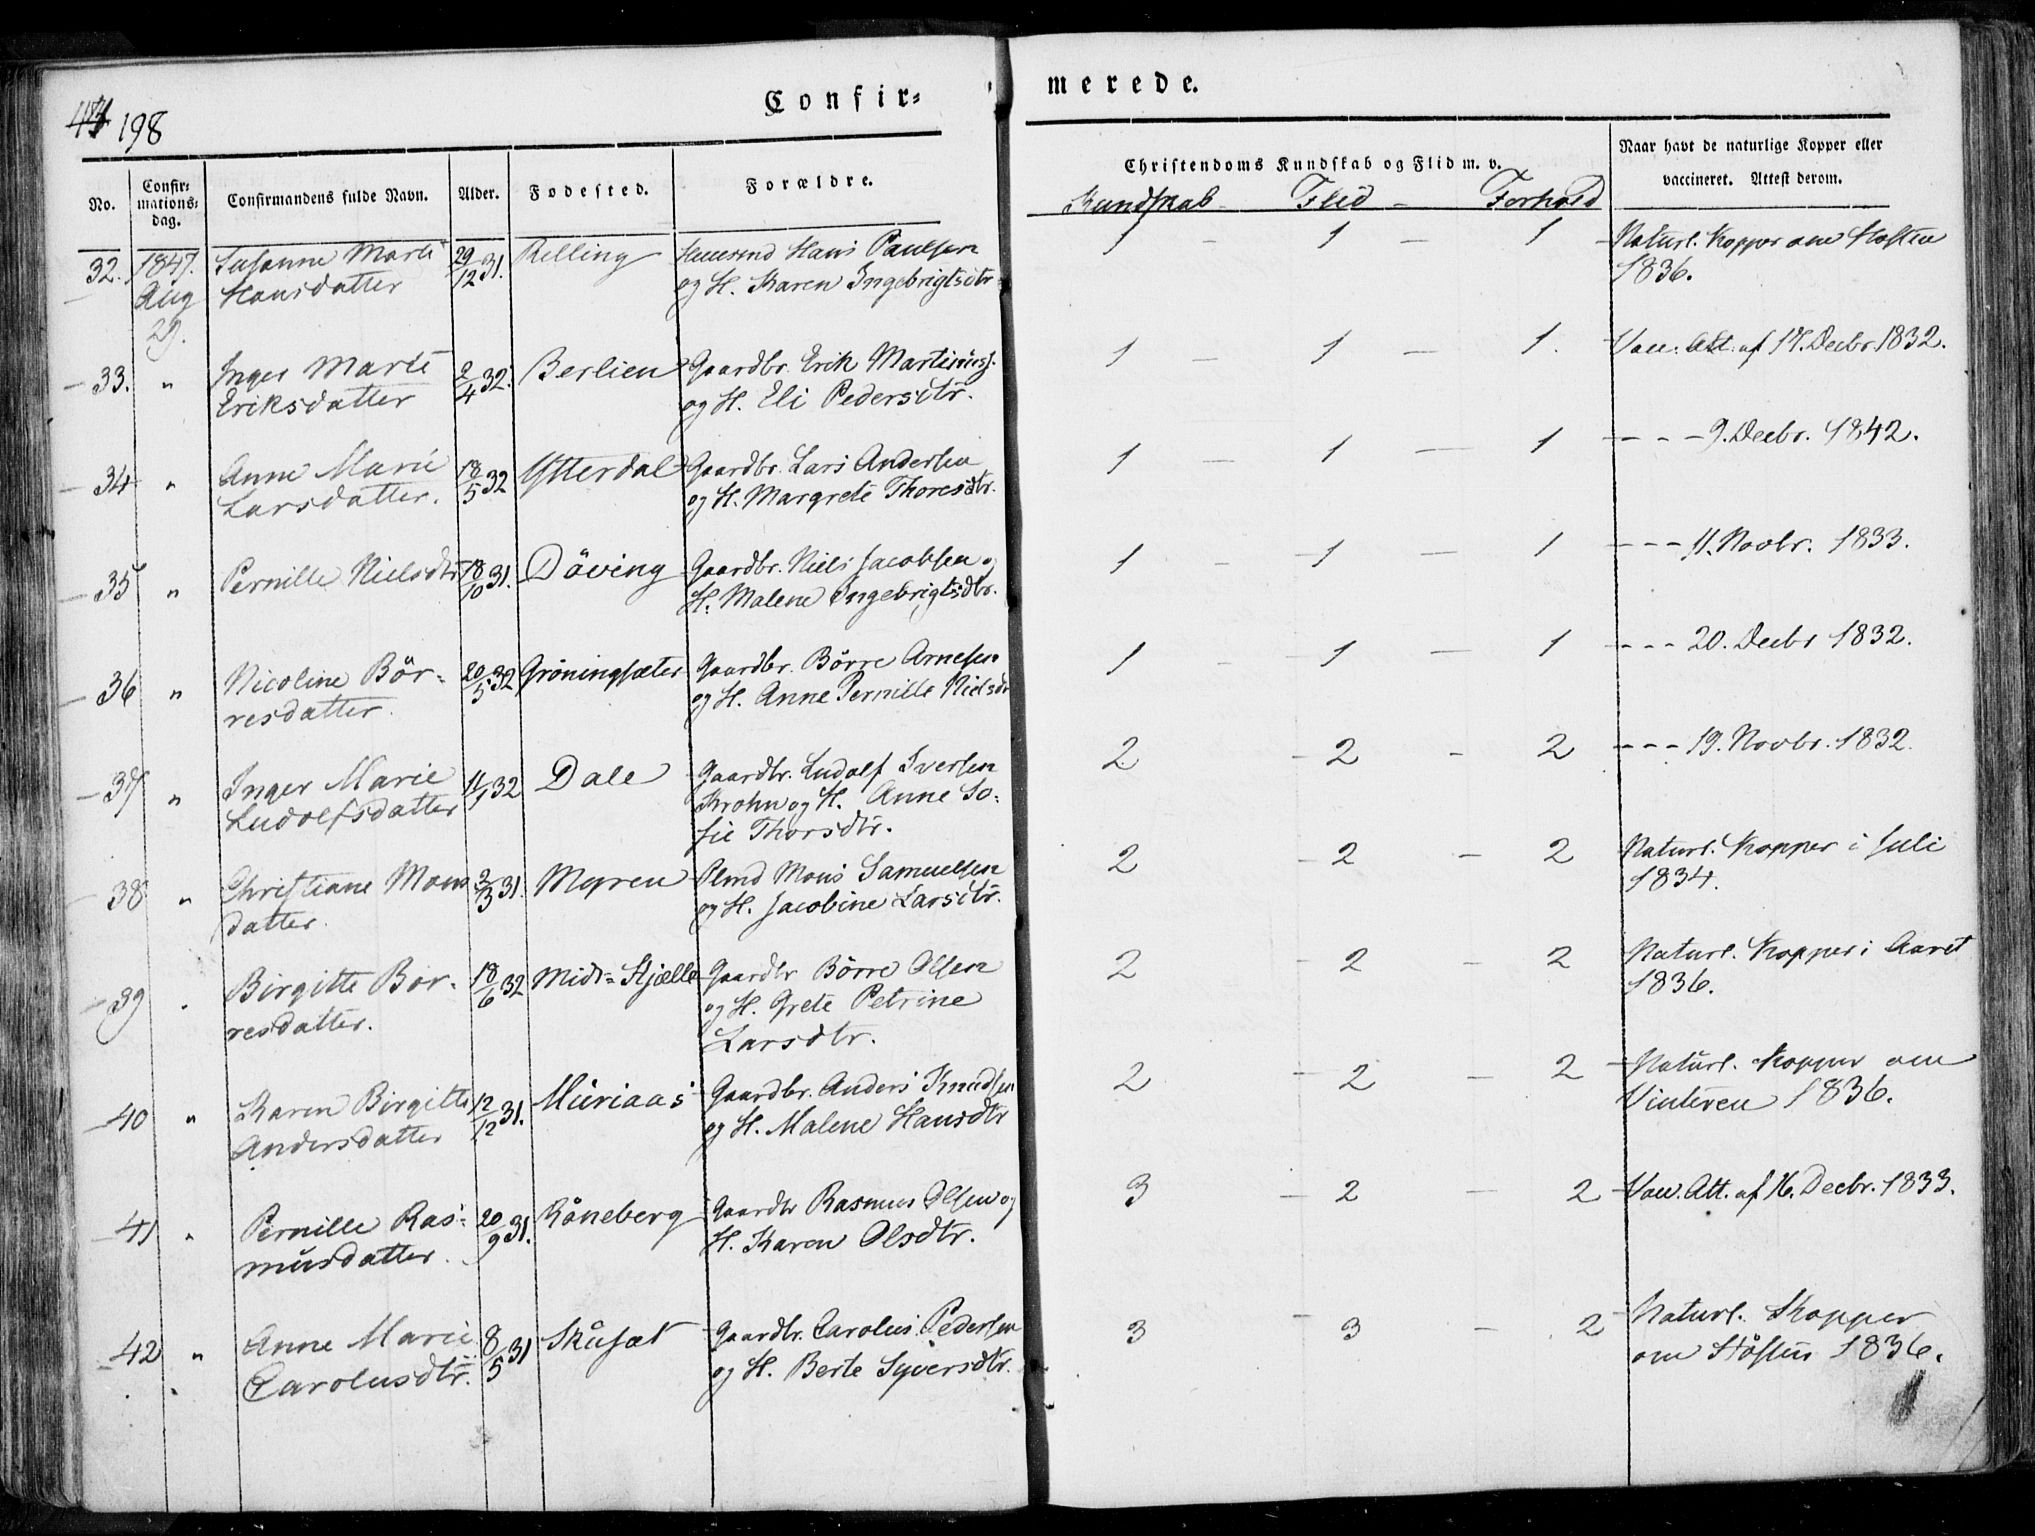 198
Confir=
merede.
No.
Confir=
mations=
dag.
Confirmandens fulde Navn.
Alder.
Fodested.
Forældre.
Christendoms Kundskab og Flid m. v.
Kundskab - Flid - Forhold
Naar havt de naturlige Kopper eller
vaccineret. Attest derom.
32. 1847. Susanne Marte 29/12 31. Relling Huusmd Hans Paulsen 1 - 1 - 1 Naturl. Kopper om Høsten
Aug Hansdatter og H. Karen Ingebrigtsdtr 1836.
29.
33. " Inger Marte 2/4 32. Berlien Gaardbr. Erik Martinuss. 1 - 1 - 1. Vacc. Att. af 17. Decbr. 1832.
Eriksdatter og H. Eli Pedersdtr.
34 " Anne Marie 18/5 32 Ytterdal Gaardbr. Lars Andersen 1 - 1 - 1 - - - 9. Decbr. 1842.
Larsdatter. og H. Margrete Thoresdtr.
35 " Pernille Nielsdtr 18/10 31. Döving Gaardbr. Niels Jacobsen og 1 - 1 - 1 - - - 11. Novbr. 1833.
H. Malene Ingebrigtsdtr.
36 " Nicoline Bör= 20/5 32 Gröningsæter Gaardbr. Börre Arnesen 1 - 1 - 1 - - - 20. Decbr 1832.
resdatter. og H. Anne Pernille Nielsdr
37 " Inger Marie 11/1 32 Dale Gaardbr. Ludolf Iversen 2 - 2 - 2 - - - 19. Novbr. 1832.
Ludolfsdatter Krohn og H. Anne So=
fie Thorsdtr.
38 " Christiane Mons 2/3 31. Myren Plmd Mons Samuelsen 2 - 2 - 2 Naturl. Kopper i Juli
datter. og H. Jacobine Larsdtr. 1834.
39 " Birgitte Bör= 18/6 32 Midt=Hjelle Gaardbr Börre Olsen 2 - 2 - 2 Naturl. Kopper i Aaret
resdatter. og H. Grete Petrine 1836.
Larsdtr.
40 " Karen Birgitte 12/12 31. Muriaas Gaardbr. Anders Knudsen 2 - 2 - 2 Naturl. Kopper om
Andersdatter og H. Malene Hansdtr Vinteren 1836.
41 " Pernille Ras= 20/9 31. Röneberg Gaardbr Rasmus Olsen og 3 - 2 - 2 Vacc. Att. af 16. Decbr. 1833.
musdatter. H. Karen Olsdtr.
42 " Anne Marie 8/5 31 Skusæt Gaardbr. Carolus Pedersen 3 - 3 - 2 Naturl. Kopper
" Carolusdtr. og H. Berte Syversdtr. om Hösten 1836.